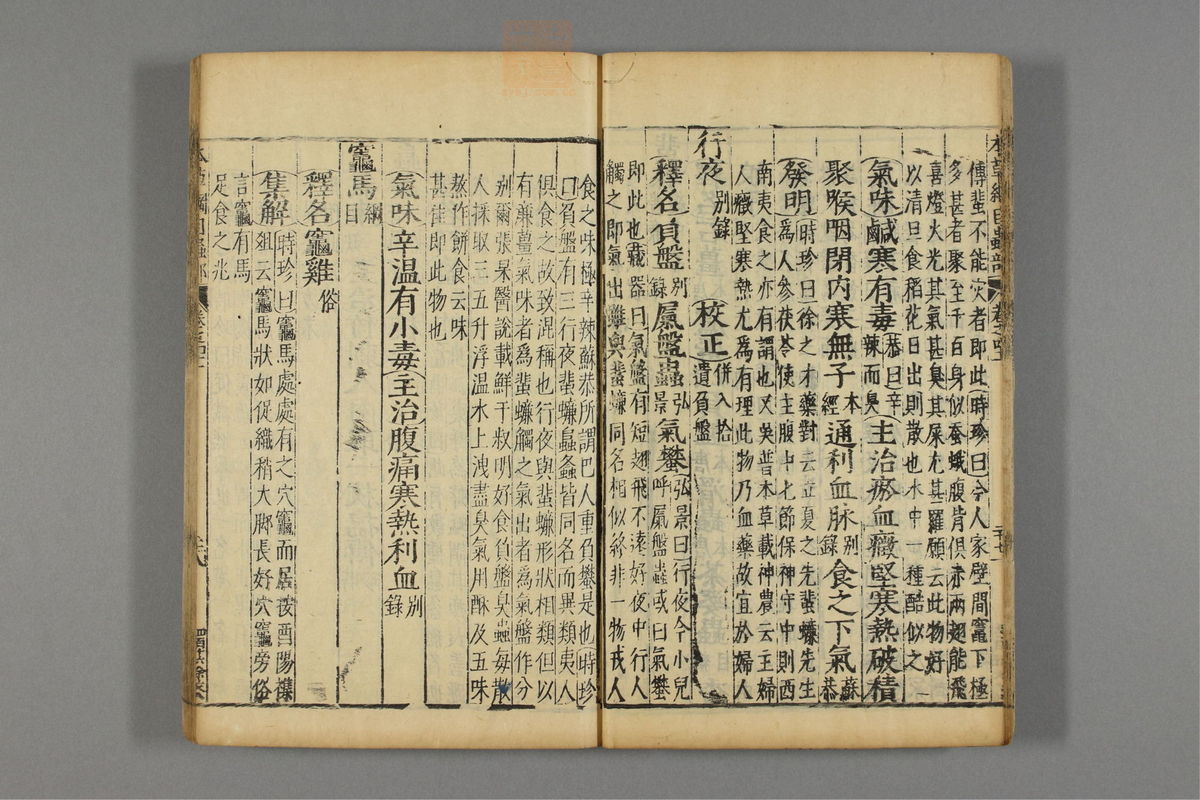 本草綱目蟲部
傅蜚不能災者即此時珍曰今人家壁間竈下極
多甚者聚至千百身似蠶蛾腹背俱赤兩翅能飛
喜燈火光其氣甚臭其屎尤甚羅願云此物好
以清旦食稻花日出則散也水中一種酷似之
氣味鹹寒有毒恭曰辛辣而臭主治瘀血癥堅寒熱破積
聚喉咽閉內寒無子本經通利血脉別錄食之下氣蘇恭
發明時珍曰徐之才藥對云立夏之先蜚蠊先生
為人參茯苓使主腹中七節保神守中則西
南夷食之亦有謂也又吳普本草載神農云主婦
人癥堅寒熱尤為有理此物乃血藥故宜於婦人
行夜別錄 校正併入拾遺負盤
釋名負盤別錄屁盤蟲弘景氣蠜弘景曰行夜今小兒呼屁盤蟲或曰氣蠜
即此也藏器曰氣盤有短翅飛不遠好夜中行人
觸之即氣出雖與蜚蠊同名相似終非一物戎人
食之味極辛辣蘇恭所謂巴人重負蠜是也時珍
曰負盤有三行夜蜚蠊𧒂螽皆同名而異類夷人
俱食之故致混稱也行夜與蜚蠊形狀相類但以
有廉薑氣味者為蜚蠊觸之氣出者為氣盤作分
別爾張杲醫說載鮮于叔明好食負盤臭蟲每散
人採取三五升浮溫水上洩盡臭氣用酥及五味
熬作餅食云味
甚佳即此物也
氣味辛溫有小毒主治腹痛寒熱利血別錄
竈馬綱目
釋名竈雞俗
集解時珍曰竈馬處處有之穴竈而居按酉陽襍
俎云竈馬狀如促織稍大脚長好穴竈旁俗
言竈有馬
足食之兆